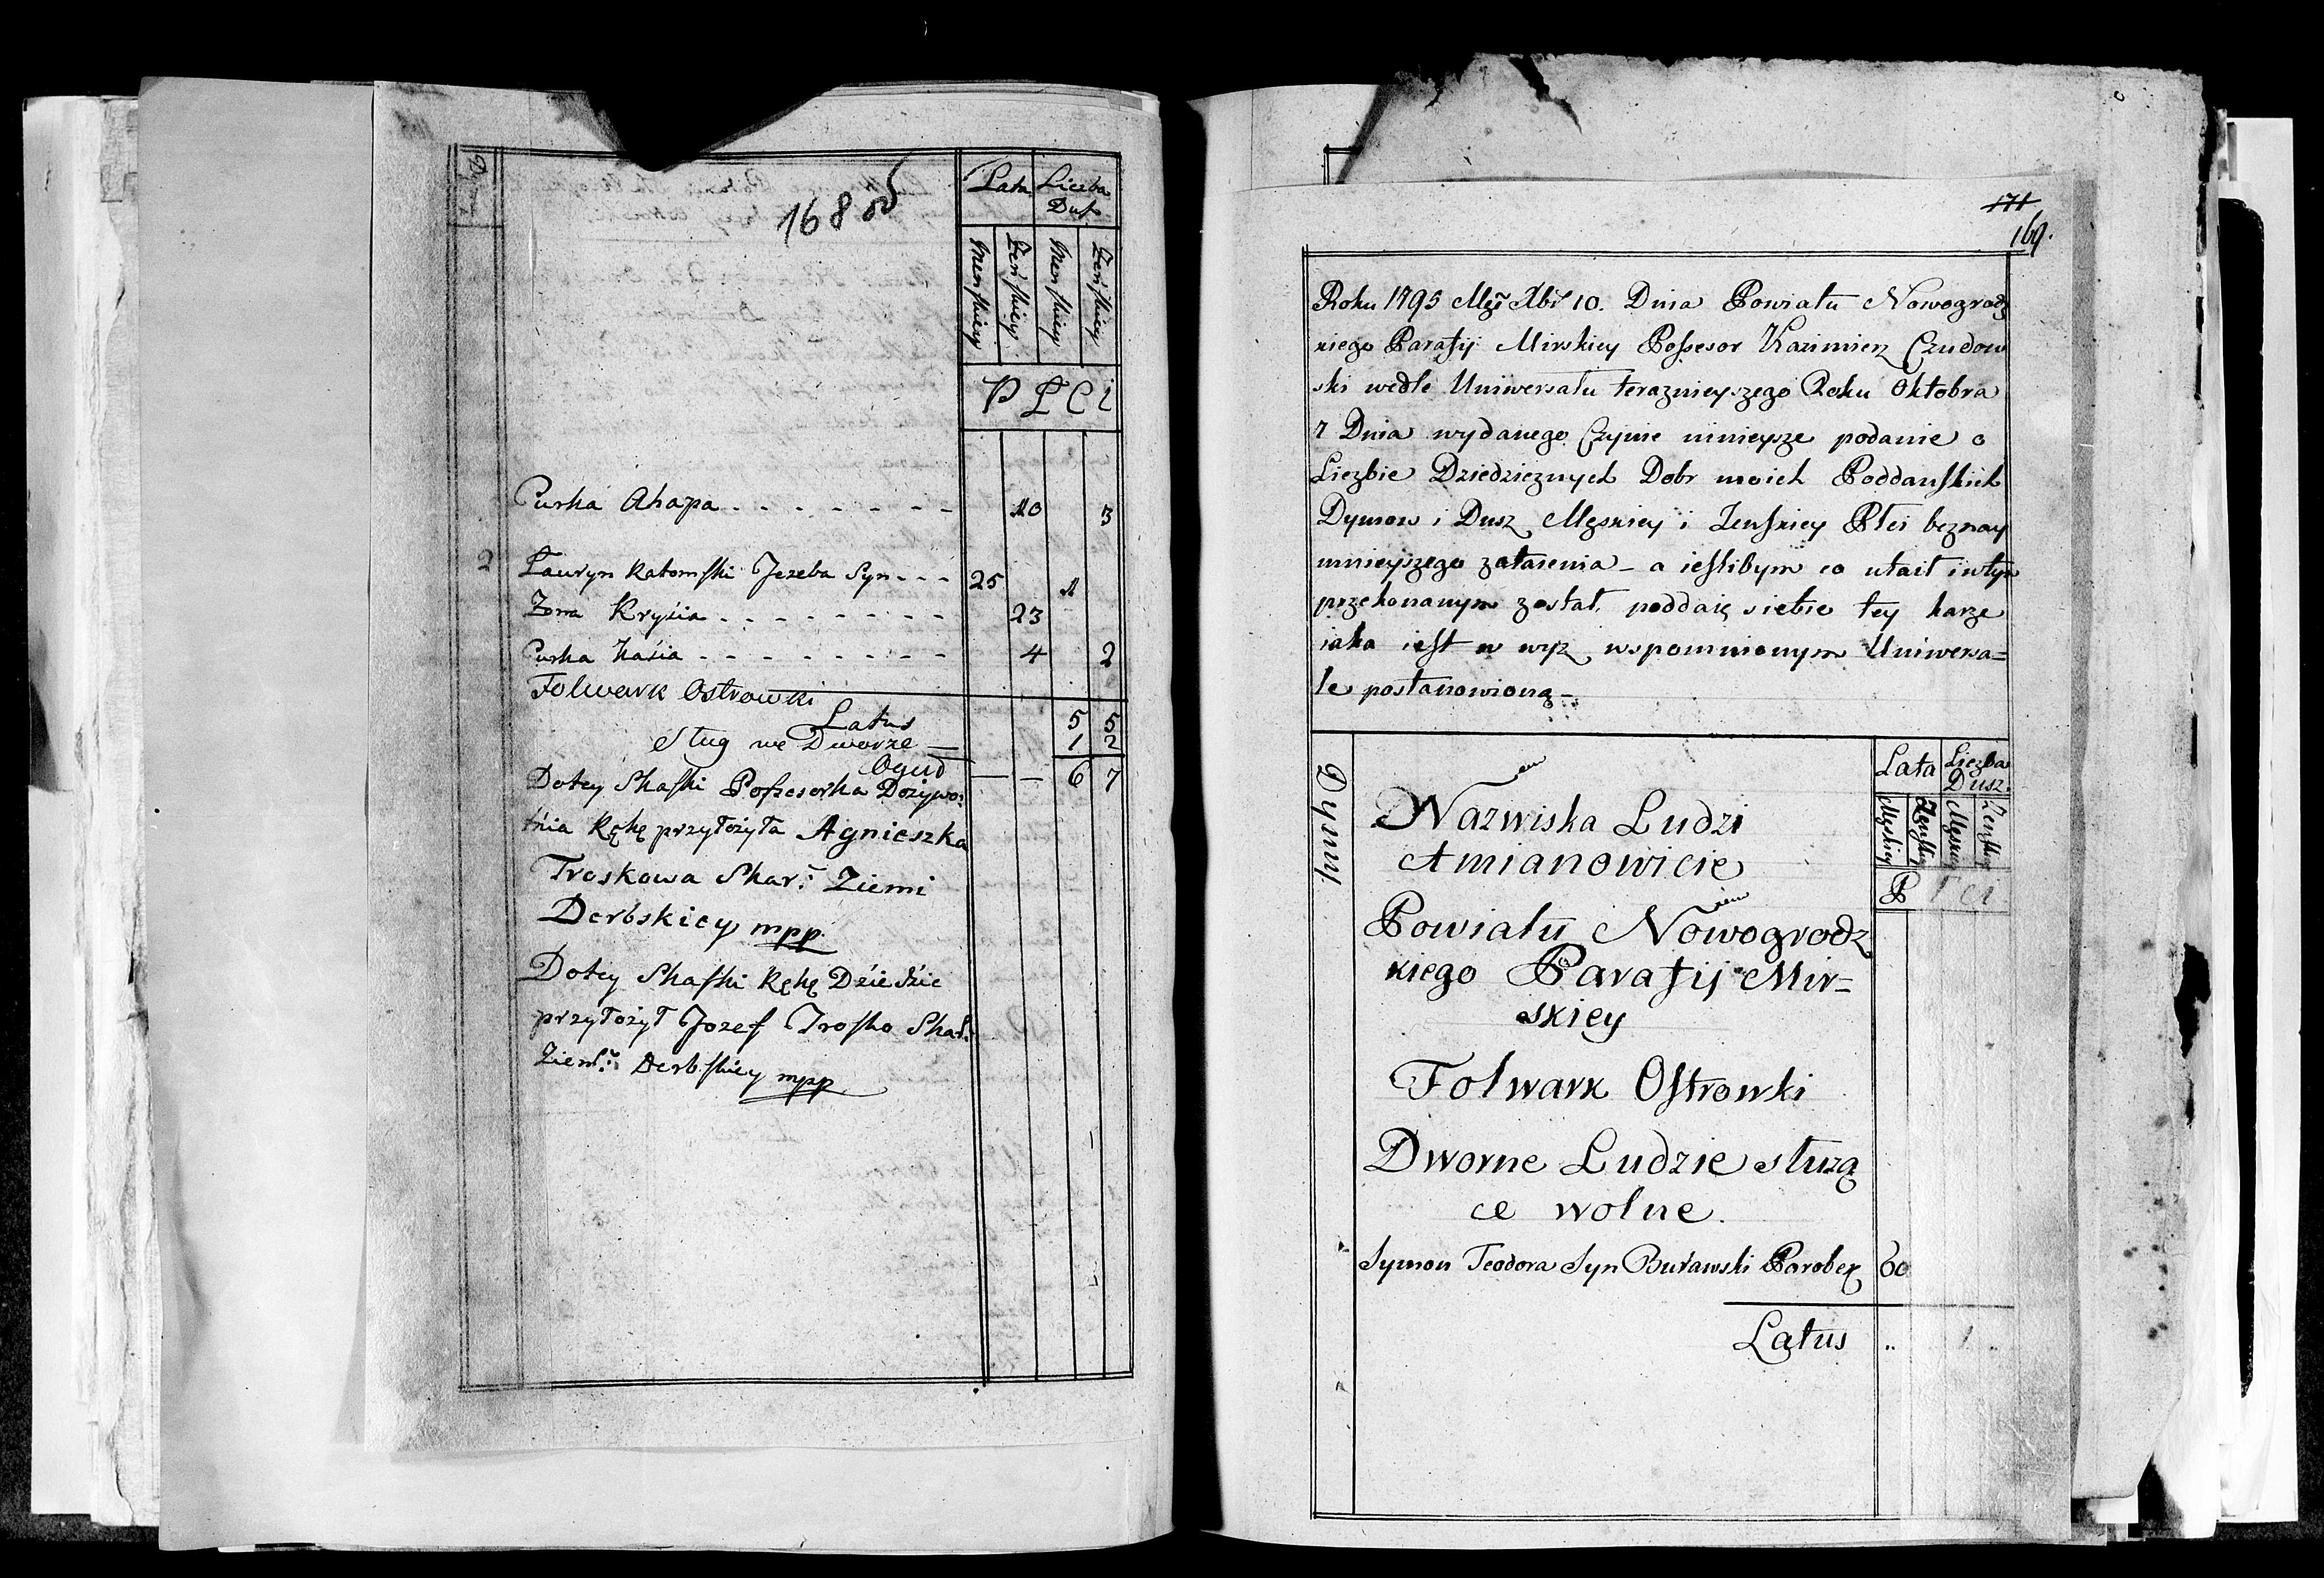 Dymy
168 об
Lata Liczba
Dusz
Męnskiey Żeńskiey Męnskiey Żeńskiey
P Ł C i
Curka Ahapa - - - - - - - - 10 3
2 Łauryn Katomski Jezeba Syn - - - 25 1
Zona Kryśia - - - - - - - - 23
Curka Kaśia - - - - - - - - - 4 2
Folwark Ostrowki
Latus 5 5
Sług we Dworze — 1 2
Oguł — — 6 7
Dotey Skaski Possesorka Dożywo:
tńia Rękę przyłożyła Agnieszka
Troskowa Skar: Ziemi
Derbskiey mpp
Dotey Skaski Rękę Dźiedźic
przyłożył Jozef Trosko Skar:
Ziem: Derbskiey mpp
171
169.
Roku 1795 Mca Xbr 10. Dnia Powiatu Nowogrodz
kiego Parafij Mirskiey Possesor Kazimierz Czudow
ski wedle Uniwersału terazniejszego Roku Oktobra
7 Dnia wydanego Czynie ninieysze podanie o
Liczbie Dziedzicznych Dobr moich Poddanskich
Dymow i Dusz Męskiey i Zenskiey Płci beznay
mnieyszego zatajenia - a ieslibym co utait i wtym
przekonanym został, poddaię siebie tey karze
iaka iest w wyz wspomnionym Uniwersa=
le postanowioną -
Dymy
Lata Liczba
Dusz.
Męskiey Zenskiey Męskiey Zenskiey
P Ł C i
Nazwiska Ludzi
Amianowicie
Powiatu Nowogrodz
kiego Parafij Mir-
skiey
Folwark Ostrowki
Dworne Ludzie służą
ce wolne.
Symon Teodora Syn Buławski Parobek 60
Latus .. 1 ..